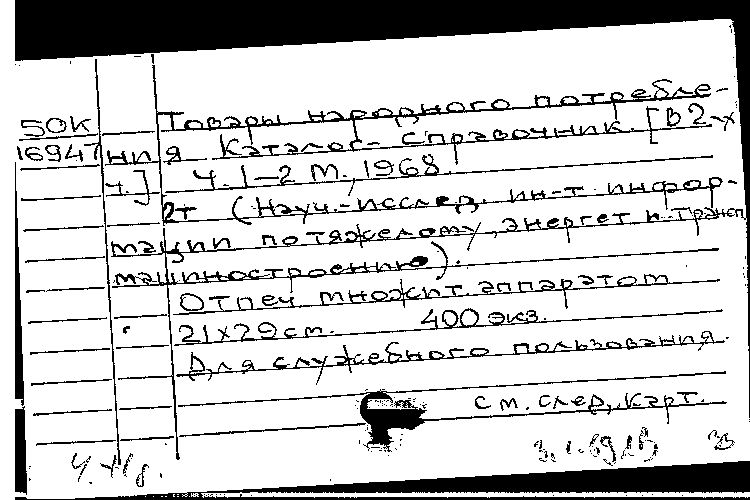 Товары народного потребле-
50К
16947 ния Каталог-справочник. [В 2-х
ч.] Ч. 1-2 М., 1968.
2т (Науч.-исслед. ин-т инфор-
мации по тяжелому, энергет и трансп
машиностроению).
Отпеч множит. аппаратом
21x29см. 400 экз.
Для служебного пользования.
см. след. карт.